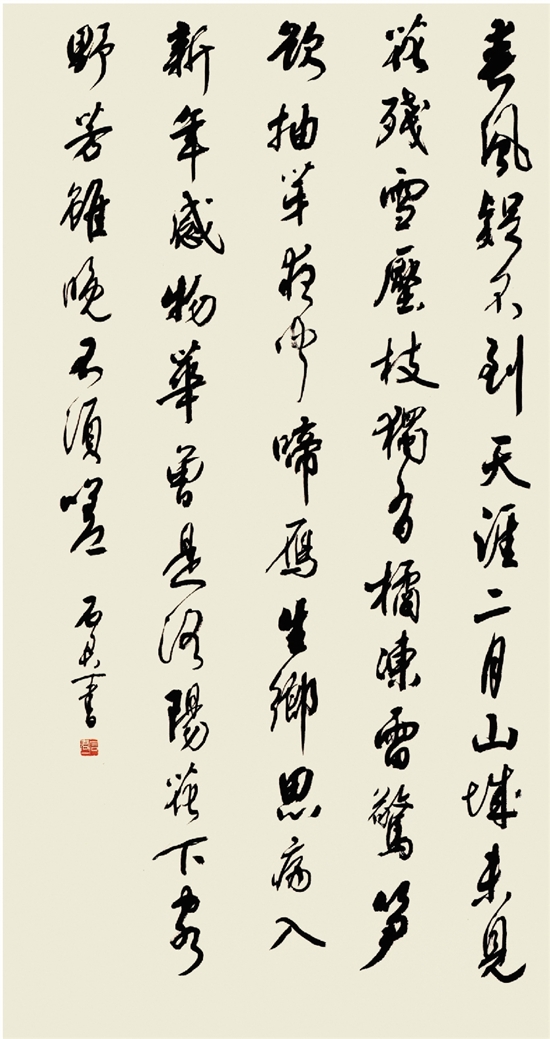 春風疑不到天涯二月山城未見
花殘雪壓枝獨有橘凍雷驚筍
欲抽芽夜聞啼雁生鄉思病入
新年感物華曾是洛陽花下客
野芳雖晚不須嗟 石書